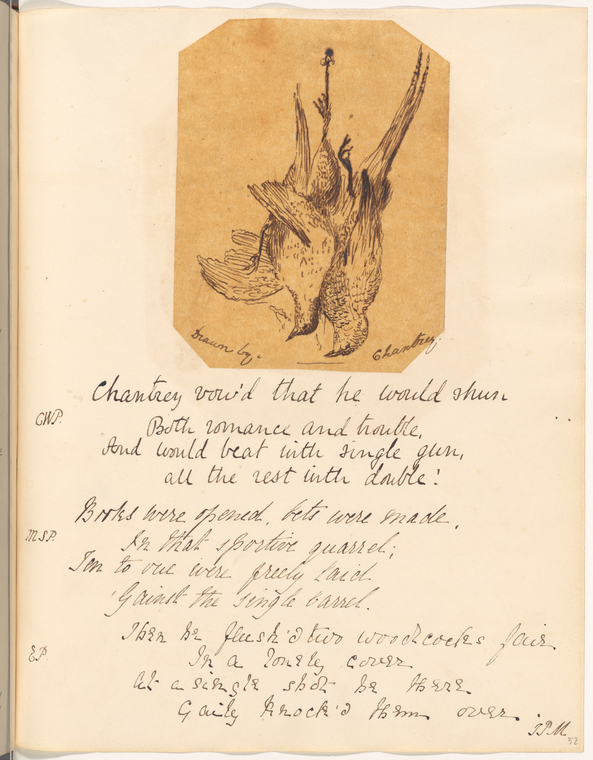 Drawn by. Chantrey.
Chantrey vow'd that he would shun
CWP. Both romance and trouble,
And would beat with single gun,
all the rest with double!
Books were opened, bets were made,
MSP. In that sportive quarrel;
Ten to one were freely laid
'Gainst the single barrel.
Then he flush'd two woodcocks fair
EP. In a lonely cover
At a single shot he there
Gaily knock'd them over.
JPM
52